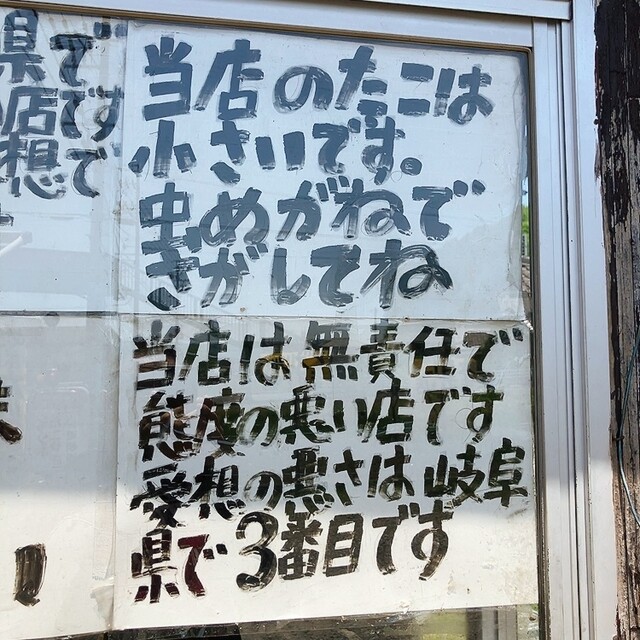 当店のたこは
小さいです。
虫めがねで
さがしてね
当店は無責任で
態度の悪い店です
愛想の悪さは岐阜
県で3番目です
県で
店です
想で